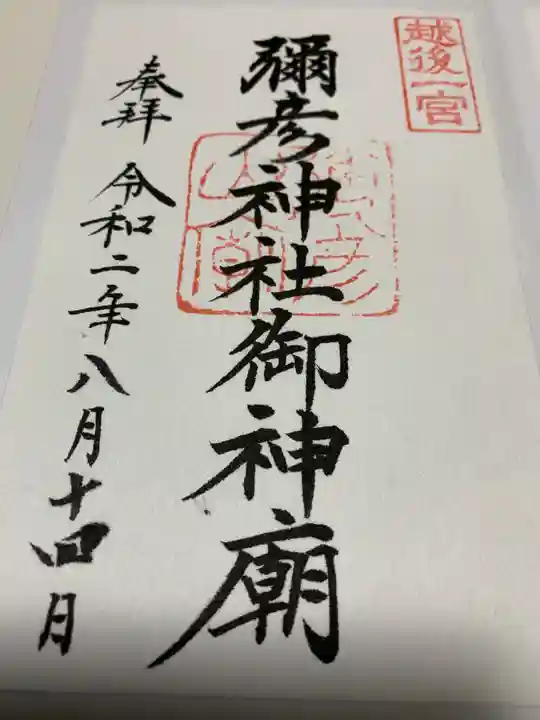 越後一宮
彌彦神社御神廟
奉拝 令和二年八月十四日